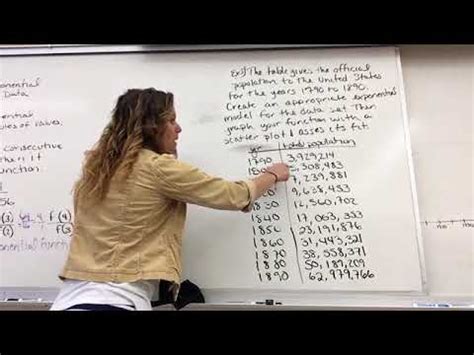 ponential
Data
ponential
ules of values.
consecutive
f(3)
f(2)
ponential Function
Ex3) The table gives the official
population to the United States
for the years 1790 to 1890.
Create an appropriate exponential
model for the data set. Then
graph your function with a
scatter plot & asses its fit.
yr total population
1790 3,929,214
180 5,308,483
7,239,881
20 9,638,453
1830 12,860,702
1840 17,063,353
1850 23,191,876
1860 31,443,321
1870 38,558,371
1880 50,189,209
1890 62,979,766